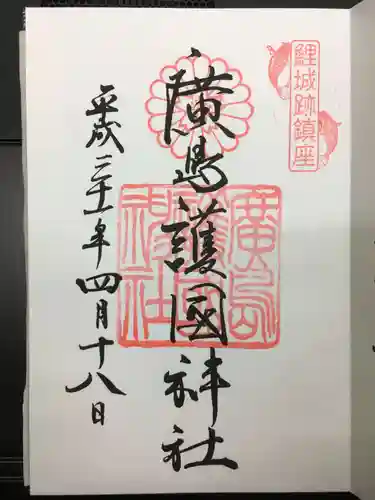 鯉城跡鎮座
廣島護國神社
廣島護國神社
平成三十一年四月十八日